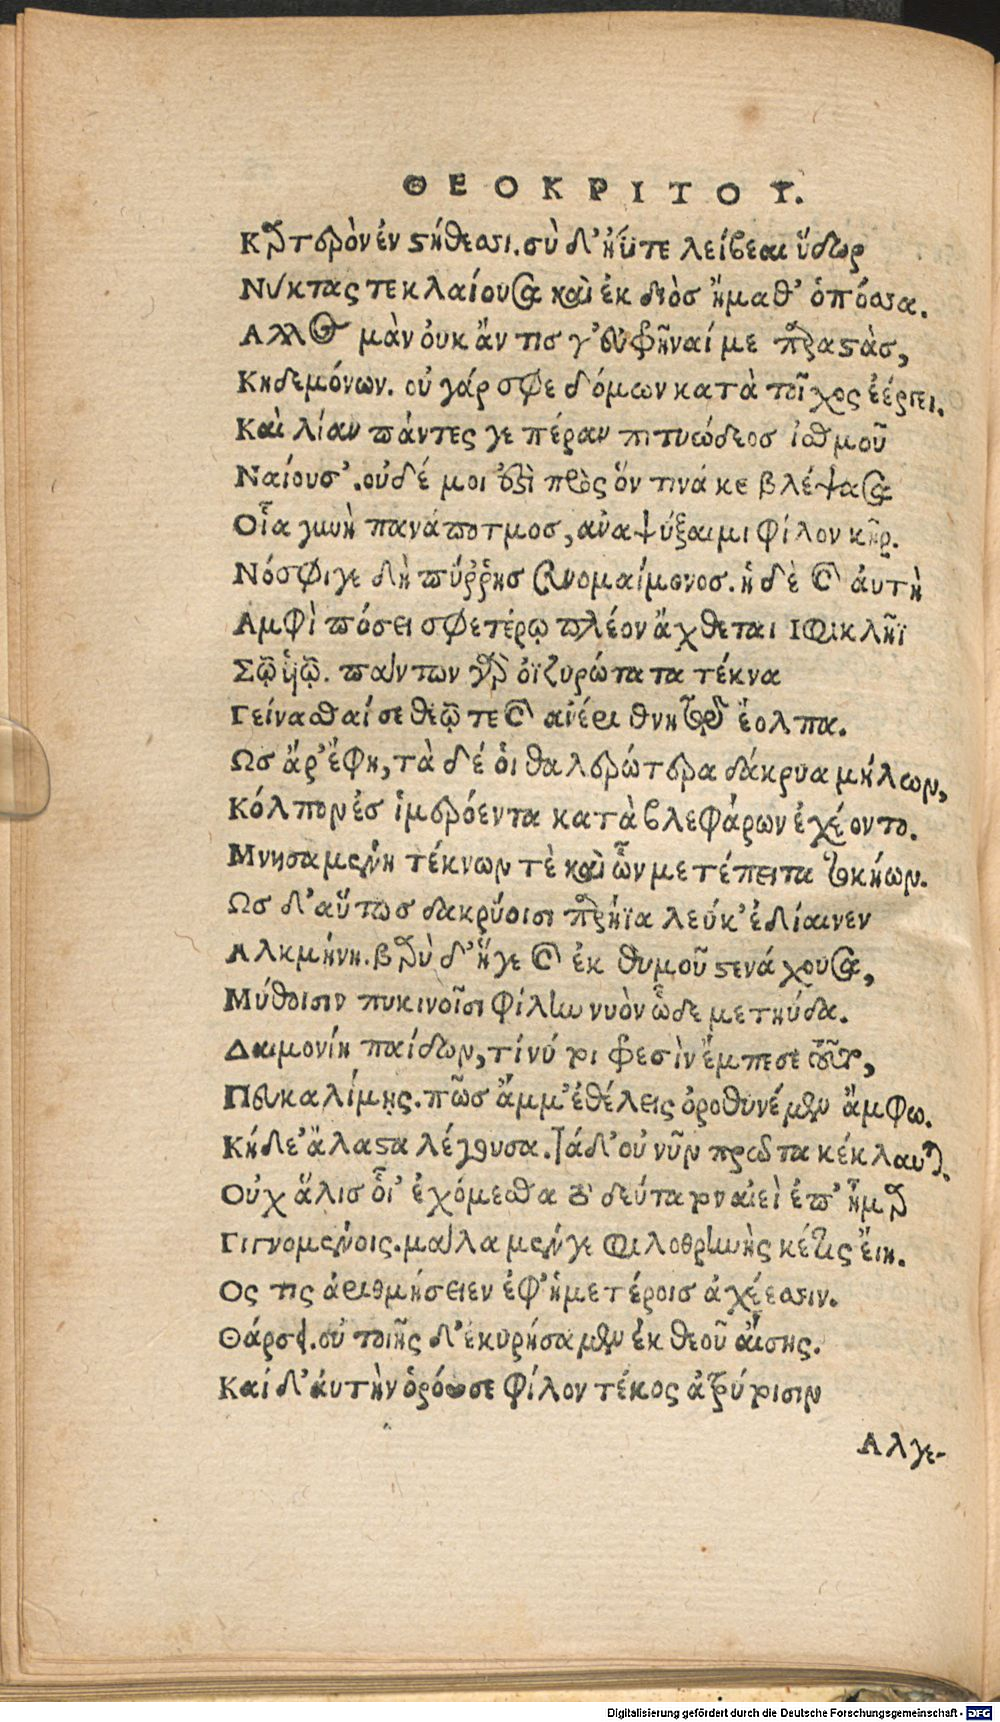 ΘΕΟΚΡΙΤΟΥ.
Καρτερὸν ἐν στήθεσσι. σὺ δ' ἠΰτε λείβεαι ὕδωρ
Νύκτας τε κλαίουσα καὶ ἐκ διὸς ἤμαθ' ὁπόσσα.
Ἀλλος μὰν οὐκ ἄν τις γ' εὐφρῆναί με παραστὰς,
Κηδεμόνων. οὐ γάρ σφε δόμων κατὰ τοῖχος ἐέργει.
Καὶ λίαν πάντες γε πέραν πιτυώδεος ἰσθμοῦ
Ναίουσ'. οὐδέ μοι ἐστὶ πρὸς ὅν τινά κε βλέψασα
Οἷα γυνὴ πανάποτμος, ἀναψύξαιμι φίλον κῆρ.
Νόσφι γε δὴ πύρρης συνομαίμονος. ἡ δὲ καὶ ἀυτὴ
Ἀμφὶ πόσει σφετέρῳ πλέον ἄχθεται Ἰφικλῆϊ
Σῷ ὑῷ. πάντων γὰρ ὀϊζυρώτατα τέκνα
Γείνασθαί σε θεῷ τε καὶ ἀνέρι θνητῷ ἔολπα.
Ὣς ἄρ' ἔφη, τὰ δέ οἱ θαλερώτερα δάκρυα μήλων,
Κόλπον ἐς ἱμερόεντα κατὰ βλεφάρων ἐχέοντο.
Μνησαμένῃ τέκνων τὲ καὶ ὧν μετέπειτα τοκήων.
Ὣς δ' αὕτως δακρύοισι παρήϊα λεύκ' ἐδίαινεν
Ἀλκμήνη. βαρὺ δ' ἥγε καὶ ἐκ θυμοῦ στενάχουσα,
Μύθοισιν πυκινοῖσι φίλην νυὸν ὧδε μετηύδα.
Δαιμονίη παίδων, τί νύ τοι φρεσὶν ἔμπεσε τοῦτο,
Πευκαλίμης. πῶς ἄμμ' ἐθέλεις ὀροθυνέμεν ἄμφω.
Κήδε' ἄλαστα λέγουσα. τάδ' οὐ νῦν πρῶτα κέκλαυται.
Οὐχ ἅλις οἷ' ἐχόμεσθα τὸ δεύτατον αἰεὶ ἐπ' ἦμαρ
Γιγνομένοις. μάλα μέν γε φιλοθρηνὴς κέ τις εἴη.
Ὅς τις ἀριθμήσειεν ἐφ' ἡμετέροις ἀχέεσσιν.
Θάρσει. οὐ τοιῆς δ' ἐκυρήσαμεν ἐκ θεοῦ αἴσης.
Καὶ δ' ἀυτὴν ὁρόωσε φίλον τέκος ἀτρύτοισιν
Ἀλγε-
Digitalisierung gefördert durch die Deutsche Forschungsgemeinschaft - DFG